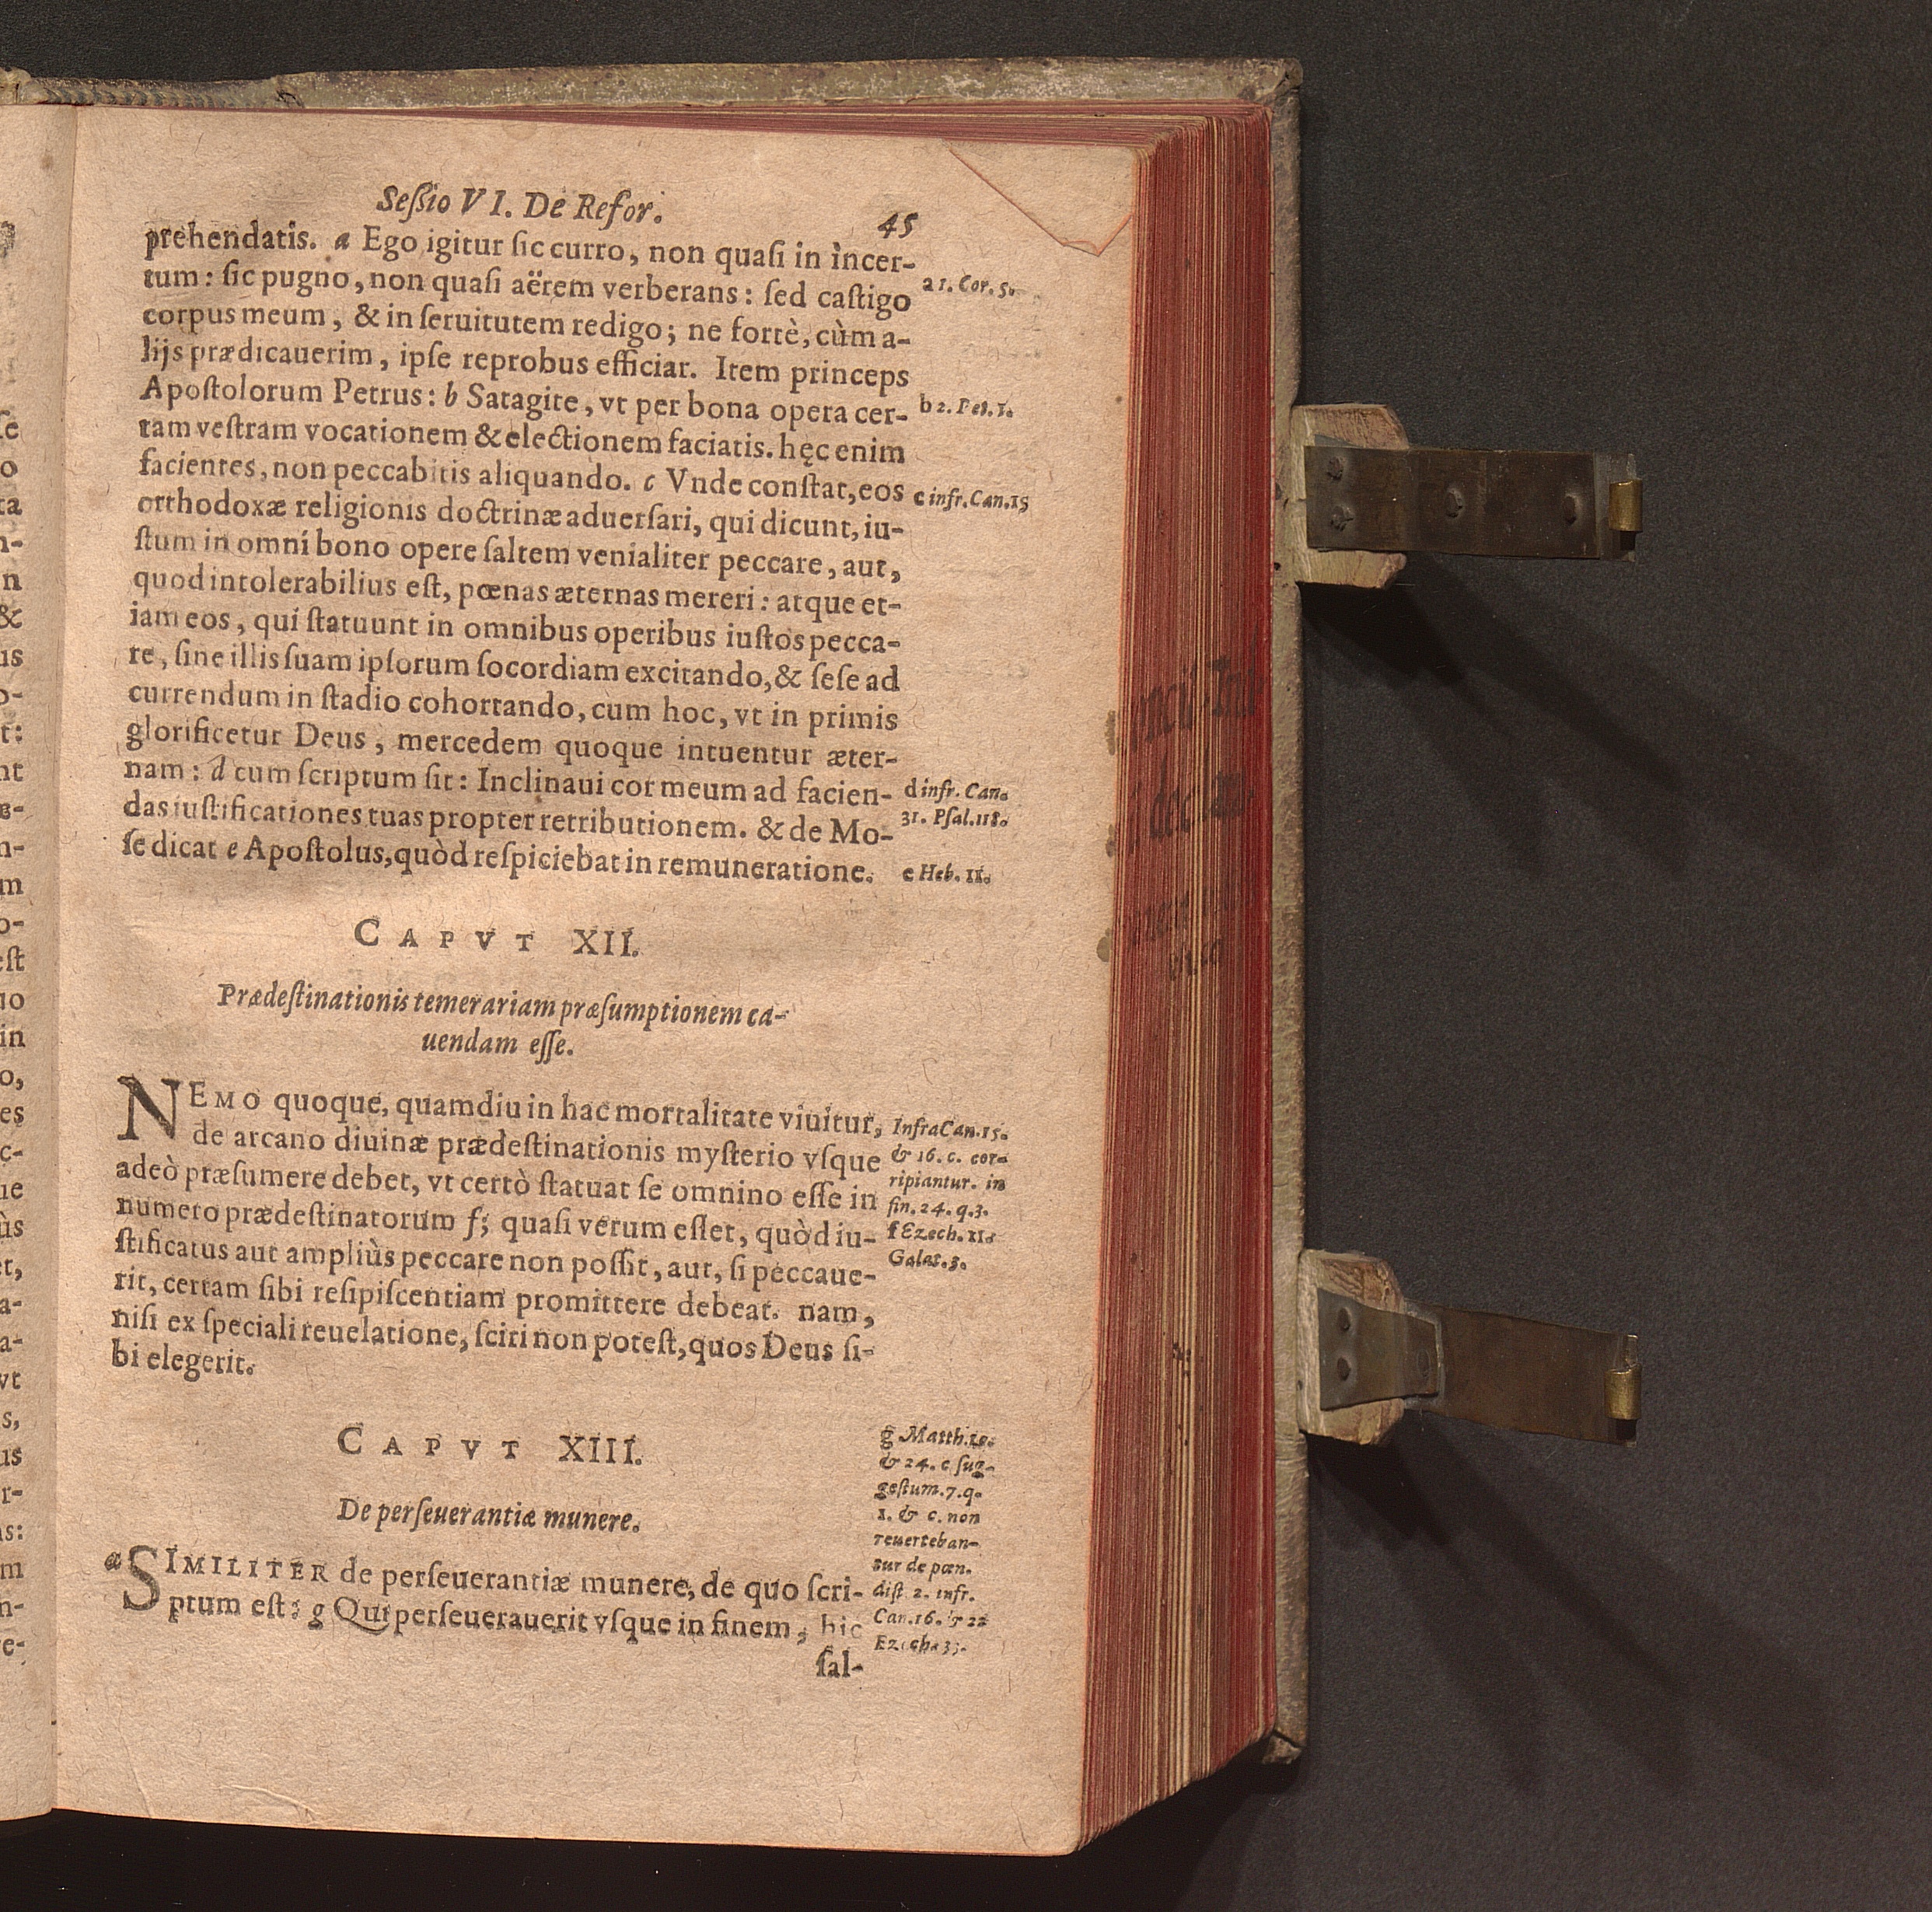 Seſſio VI. De Refor. 45
prehendatis. a Ego igitur ſic curro, non quaſi in incer-
tum: ſic pugno, non quaſi aërem verberans: ſed caſtigo
corpus meum, & in ſeruitutem redigo; ne fortè, cùm a-
lijs prædicauerim, ipſe reprobus efficiar. Item princeps
Apoſtolorum Petrus: b Satagite, vt per bona opera cer-
tam veſtram vocationem & electionem faciatis. hęc enim
facientes, non peccabitis aliquando. c Vnde conſtat, eos
orthodoxæ religionis doctrinæ aduerſari, qui dicunt, iu-
ſtum in omni bono opere ſaltem venialiter peccare, aut,
quod intolerabilius eſt, pœnas æternas mereri: atque et-
iam eos, qui ſtatuunt in omnibus operibus iuſtos pecca-
re, ſine illis ſuam ipſorum ſocordiam excitando, & ſeſe ad
currendum in ſtadio cohortando, cum hoc, vt in primis
glorificetur Deus, mercedem quoque intuentur æter-
nam: d cum ſcriptum ſit: Inclinaui cor meum ad facien-
das iuſtificationes tuas propter retributionem. & de Mo-
ſe dicat e Apoſtolus, quòd reſpiciebat in remuneratione.
a 1. Cor. 5.
b 2. Pet. 1.
c infr. Can. 15
d infr. Can.
31. Pſal. 118.
e Heb. 11.
CAPVT XII.
Prædeſtinationis temerariam præſumptionem ca-
uendam eſſe.
NEMO quoque, quamdiu in hac mortalitate viuitur,
de arcano diuinæ prædeſtinationis myſterio vſque
adeò præſumere debet, vt certò ſtatuat ſe omnino eſſe in
numero prædeſtinatorum f; quaſi verum eſſet, quòd iu-
ſtificatus aut ampliùs peccare non poſſit, aut, ſi peccaue-
rit, certam ſibi reſipiſcentiam promittere debeat. nam,
niſi ex ſpeciali reuelatione, ſciri non poteſt, quos Deus ſi-
bi elegerit.
Infra Can. 15.
& 16. c. cor-
ripiantur. in
fin. 24. q. 3.
f Ezech. 11.
Galat. 3.
CAPVT XIII.
De perſeuerantiæ munere.
a SIMILITER de perſeuerantiæ munere, de quo ſcri-
ptum eſt: g Qui perſeuerauerit vſque in finem, hic
ſal-
g Matth. 10.
& 24. c ſug-
geſtum. 7. q.
1. & c. non
reuerteban-
tur de pœn.
diſt 2. infr.
Can. 16. & 22
Ezech. 33.